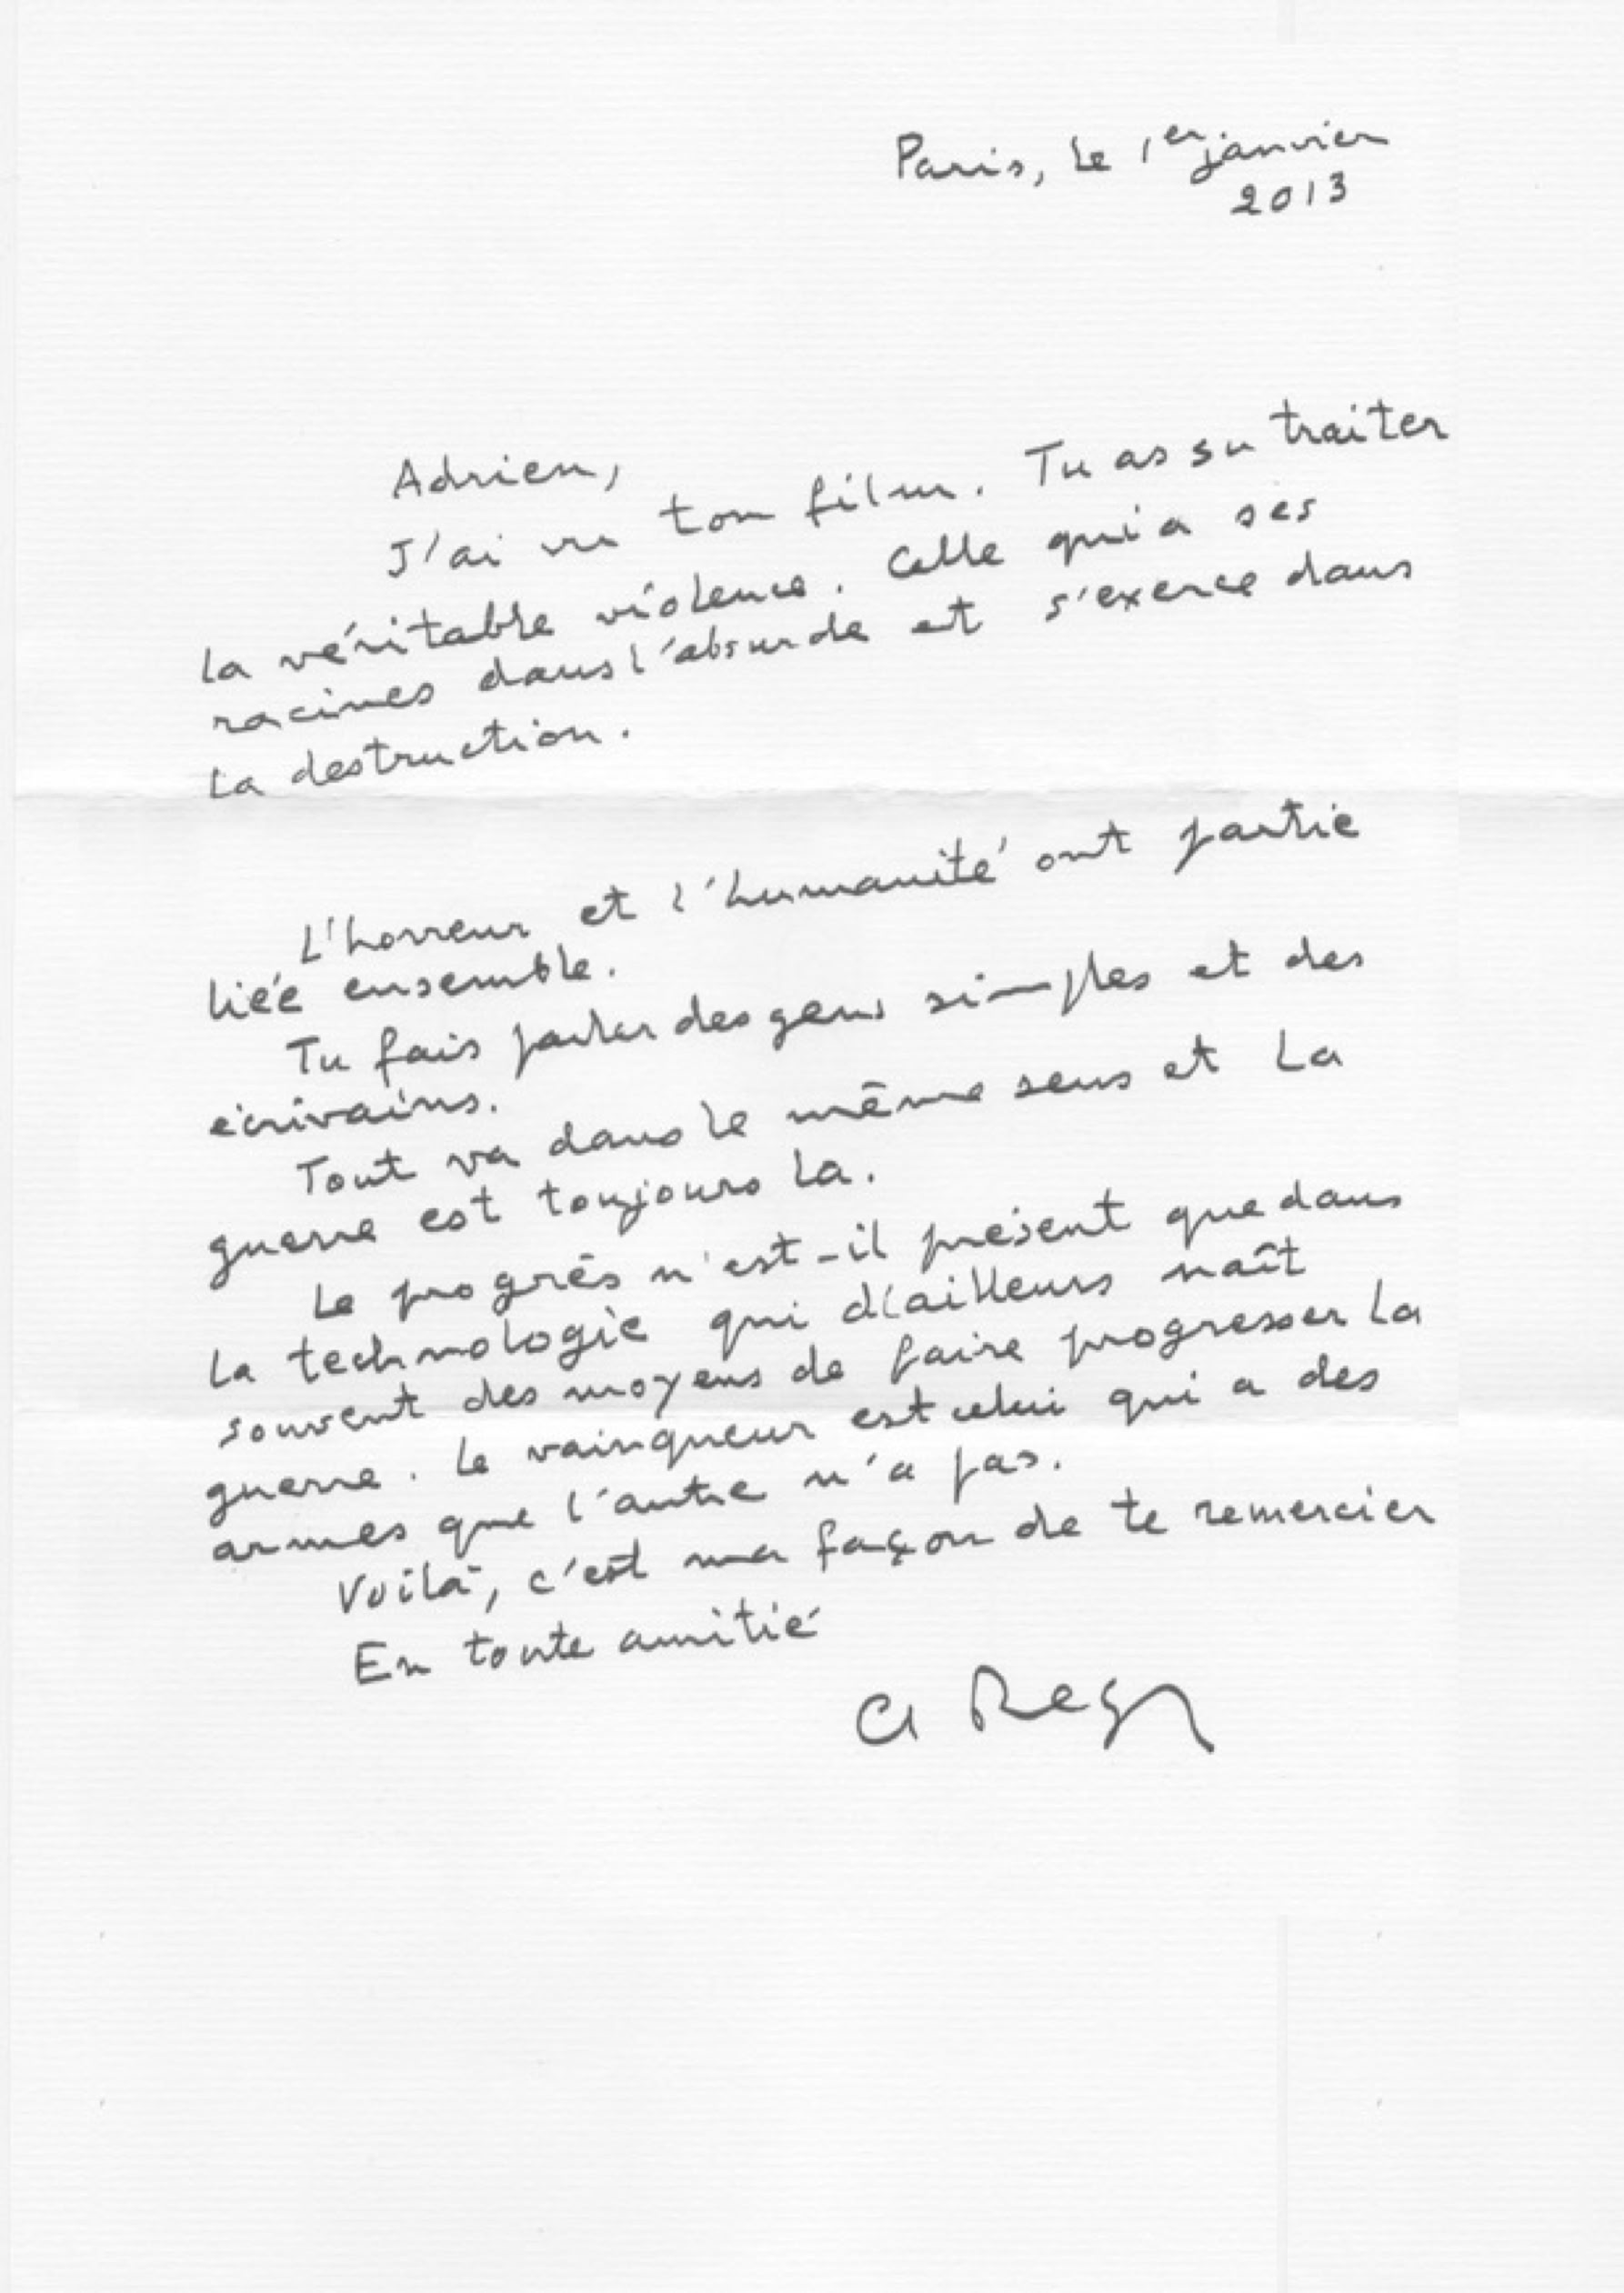 Paris, le 1er janvier
2013
Adrien,
J'ai vu ton film. Tu as su traiter
la véritable violence. Celle qui a ses
racines dans l'absurde et s'exerce dans
la destruction.
L'horreur et l'humanité ont partie
liée ensemble.
Tu fais parler des gens simples et des
écrivains.
Tout va dans le même sens et la
guerre est toujours là.
Le progrès n'est-il présent que dans
la technologie qui d'ailleurs naît
souvent des moyens de faire progresser la
guerre. Le vainqueur est celui qui a des
armes que l'autre n'a pas.
Voilà, c'est ma façon de te remercier
En toute amitié
Cl Regy